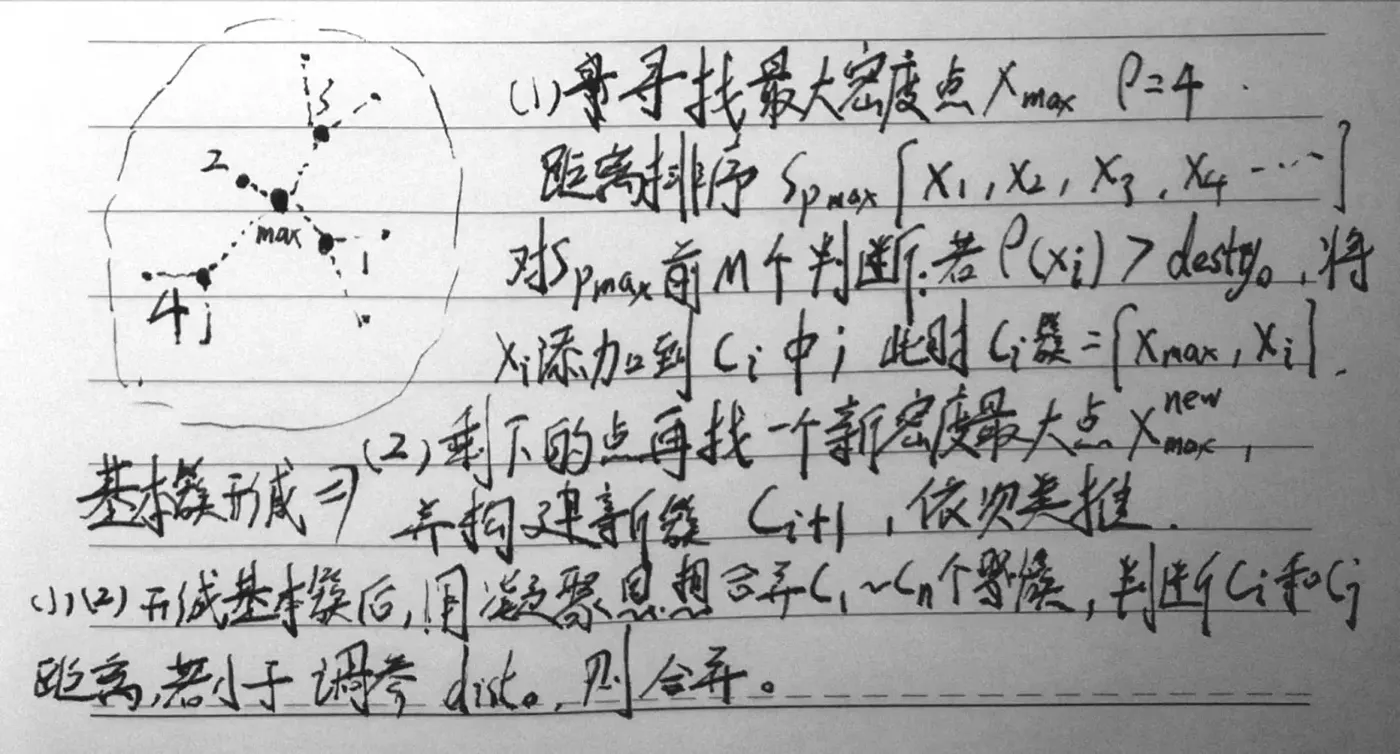 3
2
max
1
4 j
(1) 寻找最大密度点 Xmax ρ=4
距离排序 Spmax [X1, X2, X3, X4 ……]
对Spmax前M个判断:若 ρ(Xi) > desty0, 将
Xi添加到 Ci 中; 此时 Ci簇 = [Xmax, Xi].
(2) 剩下的点再找一个新密度最大点 Xmax^new,
基本簇形成 ⇒ 并构建新簇 Ci+1, 依次类推.
(1)(2) 形成基本簇后, 用凝聚思想合并C1~Cn个簇, 判断Ci和Cj
距离, 若小于调参 dist0, 则合并。